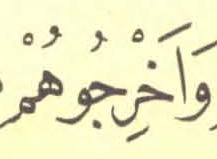 وَاَخْرِجُوهُمْ